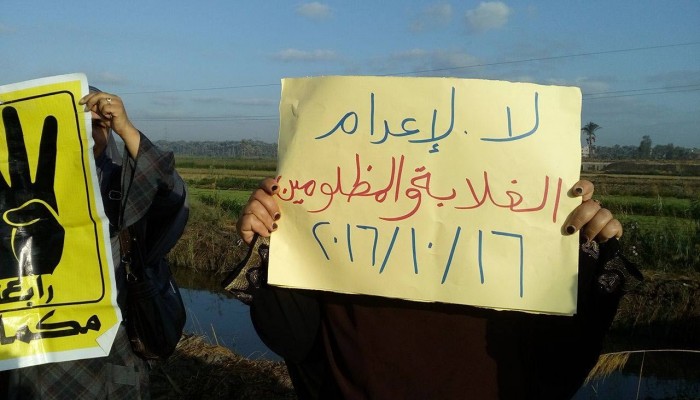 لا .لإعدام
الغلابة والمظلومين
٢٠١٦/١٠/١٦
رابعة